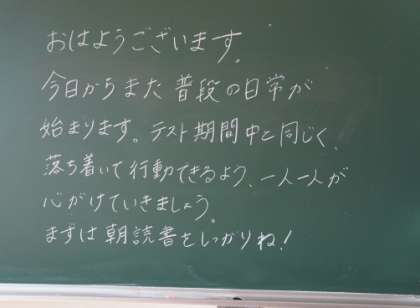 おはようございます。
今日からまた普段の日常が
始まります。テスト期間中と同じく、
落ち着いて行動できるよう、一人一人が
心がけていきましょう。
まずは朝読書をしっかりね!